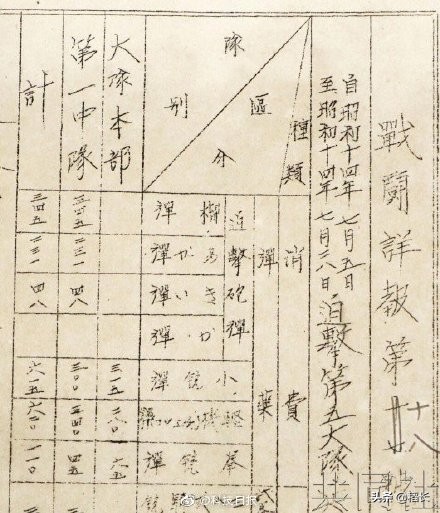 戰鬪詳報第
自昭和十四年七月五日
至昭和十四年七月二八日
迫擊第五大隊
種類
區分
隊別
消費
彈藥
迫擊砲彈
榴彈
あか彈
きい彈
小銃彈
拳銃彈
大隊本部
三一五
二六〇
六五
第一中隊
三四五
二三一
四八
三〇〇
三四〇
四五
計
三四五
二三一
四八
六一五
六〇〇
一一〇
@科技日报
头条@稻长